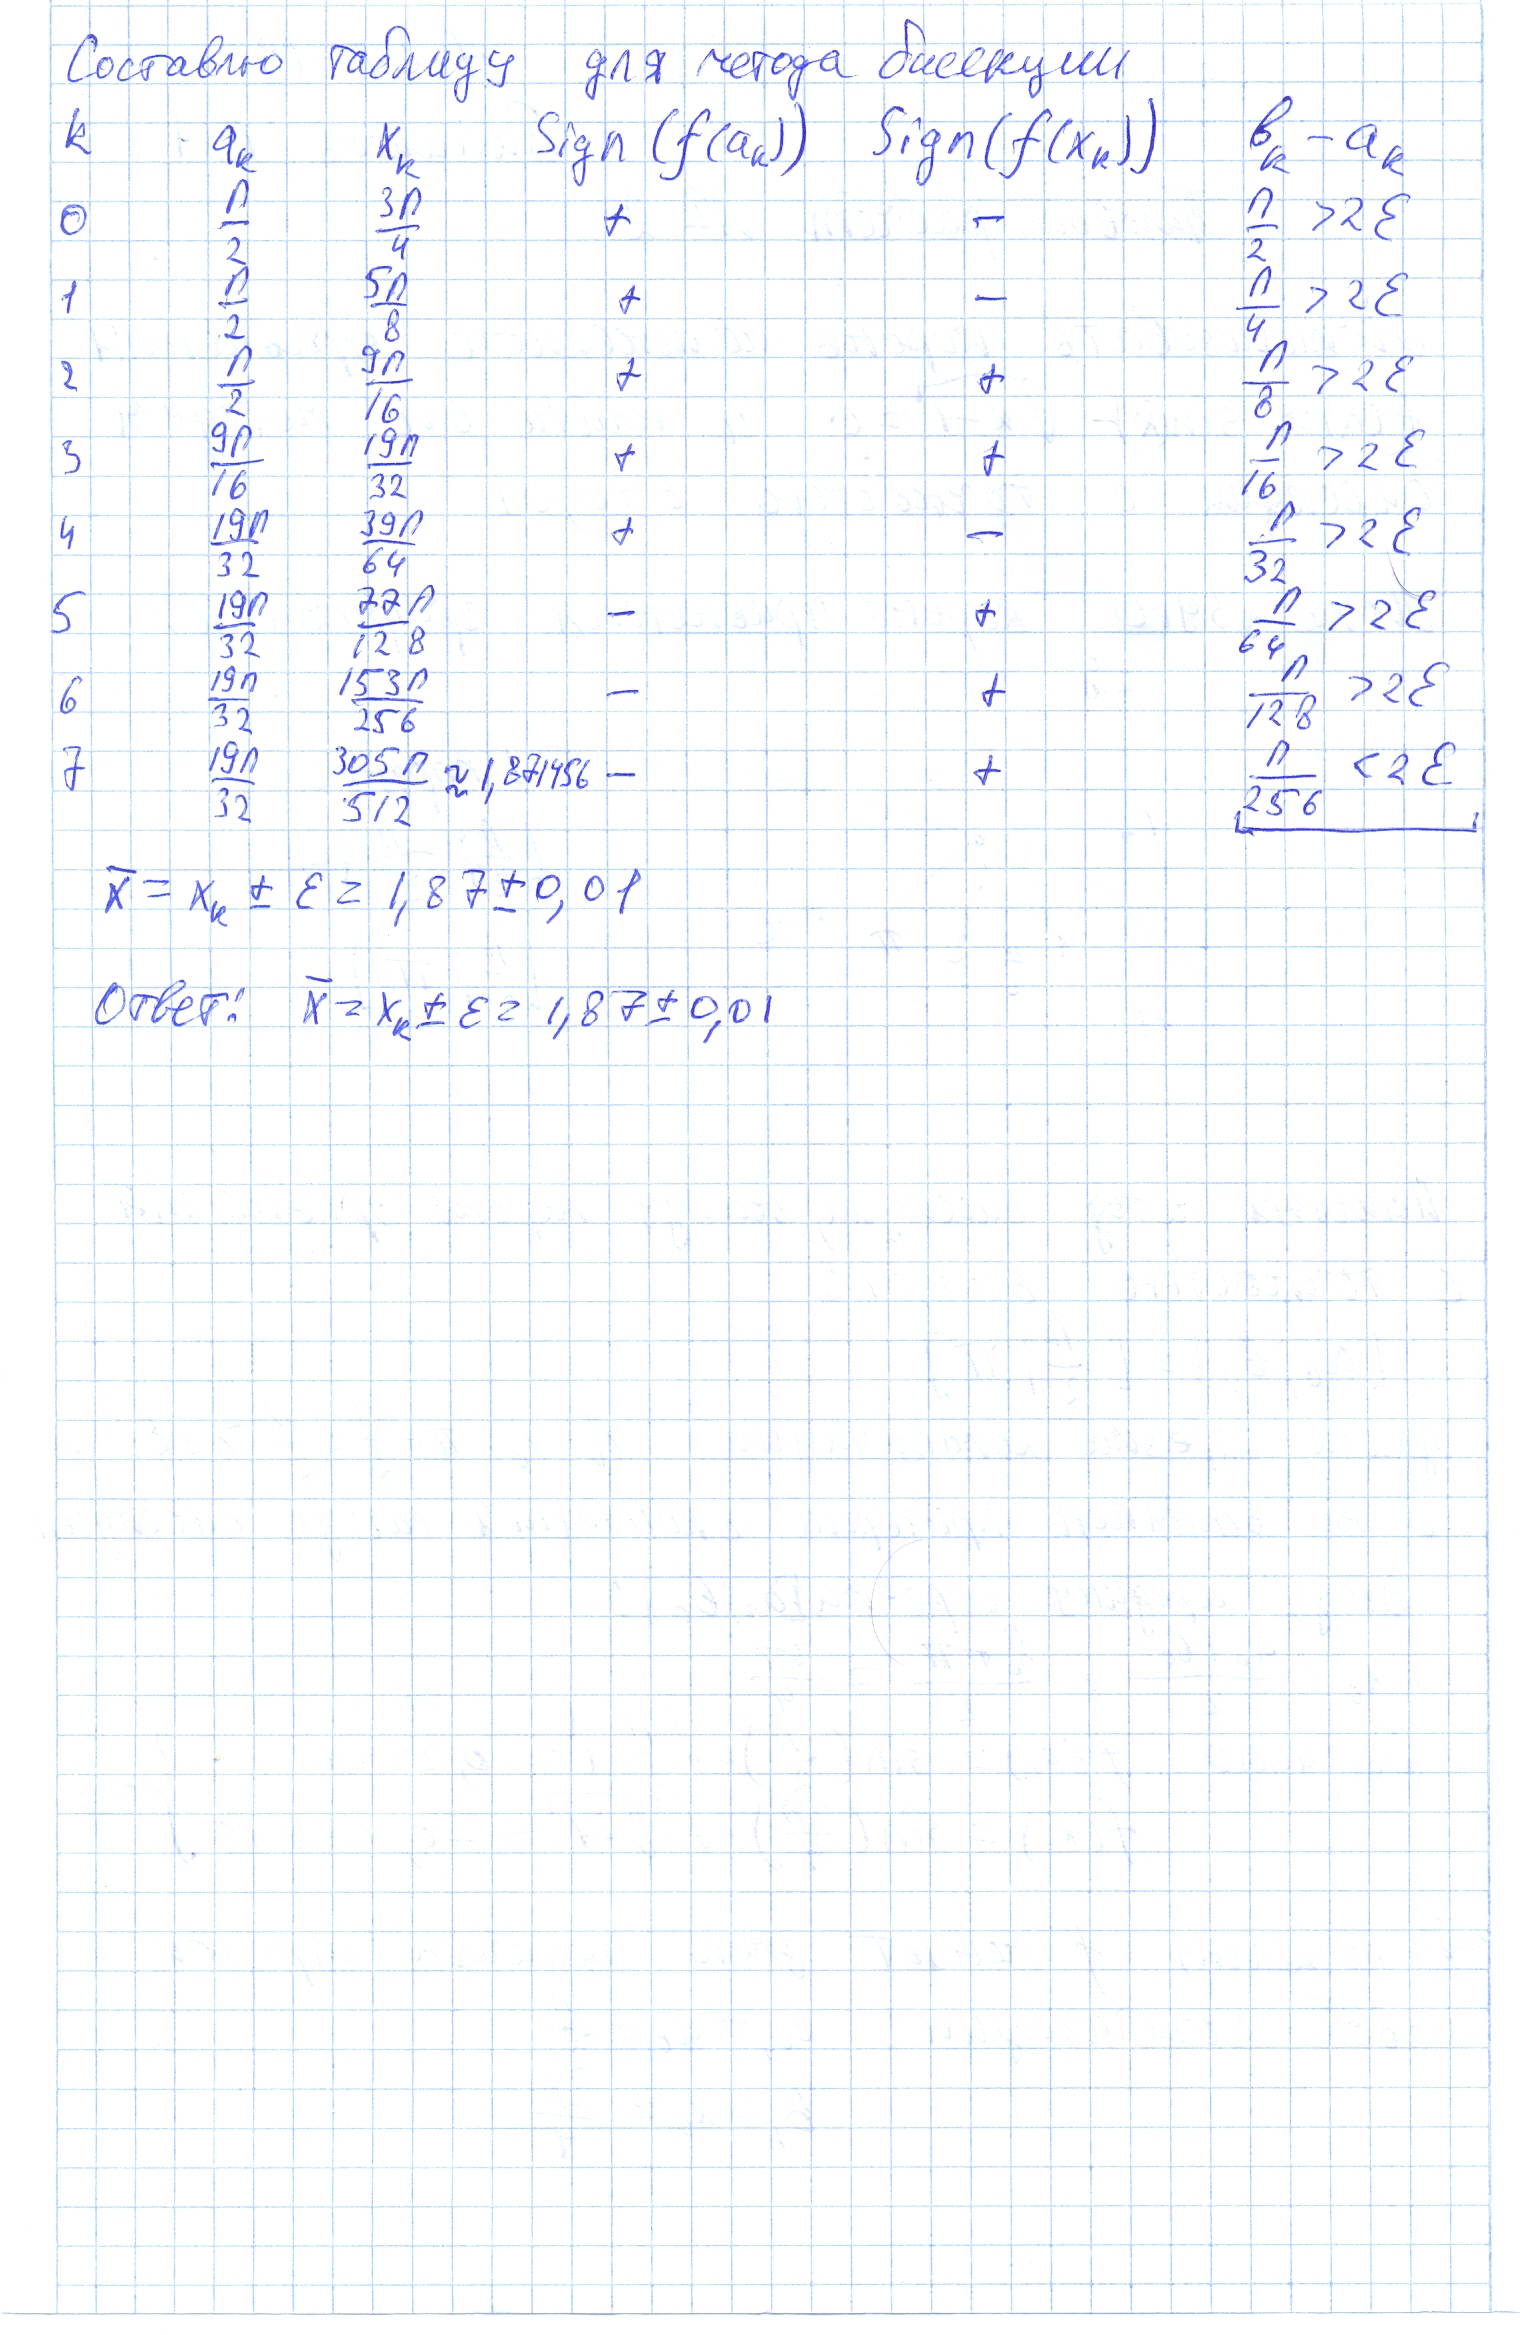 Составлю таблицу для метода бисекции
k aₖ xₖ Sign (f(aₖ)) Sign (f(xₖ)) bₖ - aₖ
0 π/2 3π/4 + - π/2 > 2ε
1 π/2 5π/8 + - π/4 > 2ε
2 π/2 9π/16 + + π/8 > 2ε
3 9π/16 19π/32 + + π/16 > 2ε
4 19π/32 39π/64 + - π/32 > 2ε
5 19π/32 77π/128 - + π/64 > 2ε
6 19π/32 153π/256 - + π/128 > 2ε
7 19π/32 305π/512 ≈ 1,871456 - + π/256 < 2ε
x̄ = xₖ ± ε = 1,87 ± 0,01
Ответ: x̄ = xₖ ± ε = 1,87 ± 0,01